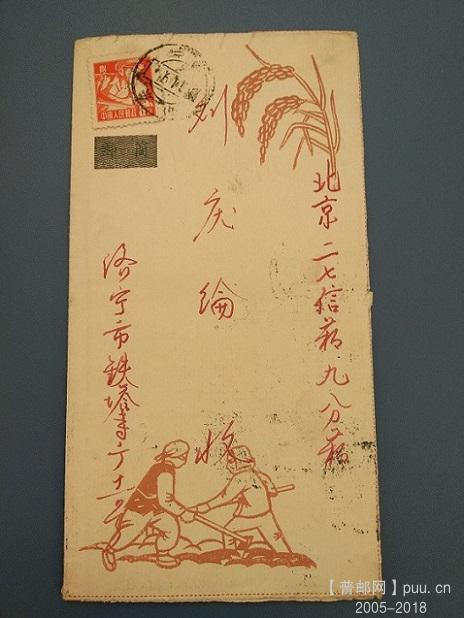 北京二七信箱九分箱
刘庆纶 收
济宁市铁塔寺
中国人民邮政
邮简
【普邮网】puu.cn
2005-2018